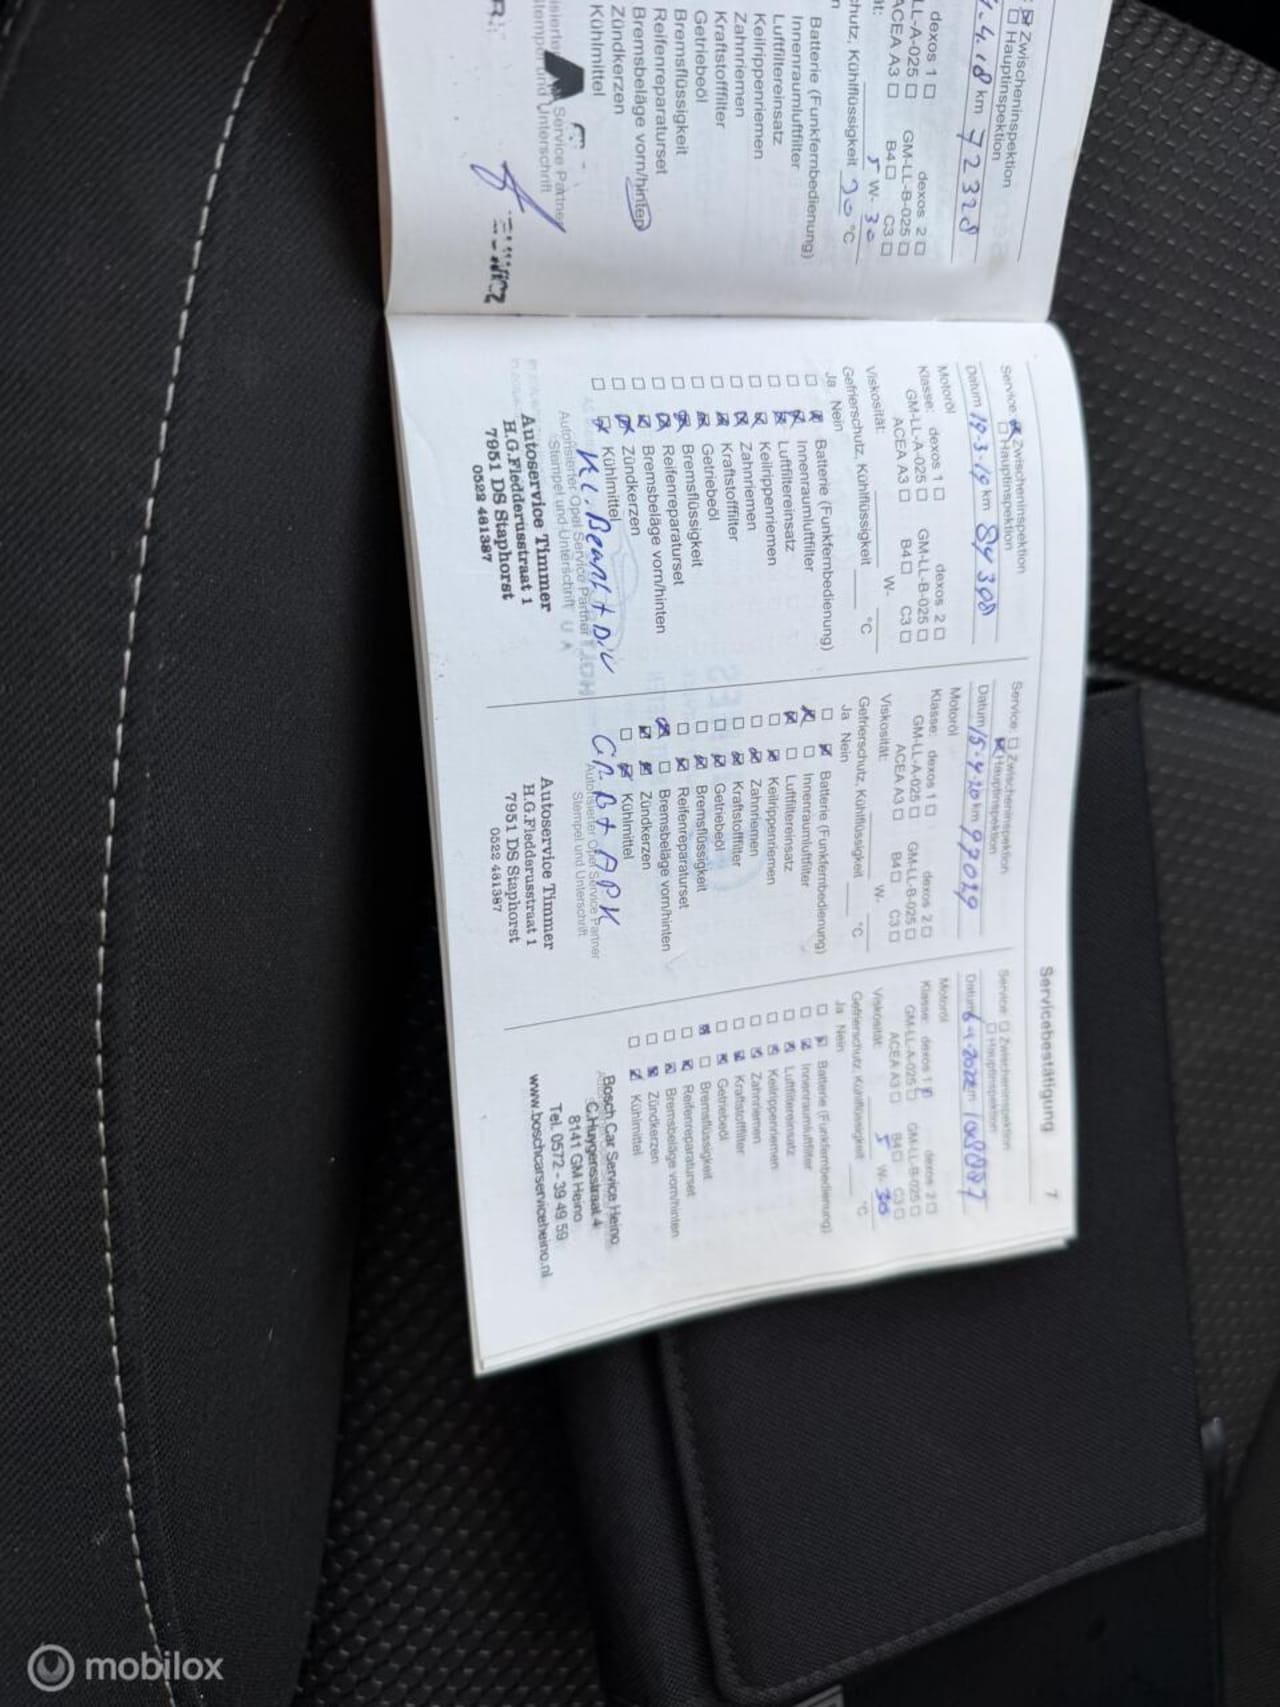 Zwischeninspektion
Hauptinspektion
4.18 km 72328
dexos 1 dexos 2
LL-A-025 GM-LL-B-025
ACEA A3 B4 C3
5 W- 30
Kühlflüssigkeit °C
Batterie (Funkfernbedienung)
Innenraumluftfilter
Luftfiltereinsatz
Keilrippenriemen
Zahnriemen
Kraftstofffilter
Getriebeöl
Bremsflüssigkeit
Reifenreparaturset
Bremsbeläge vorn/hinten
Zündkerzen
Kühlmittel
Service Partner
Stempel und Unterschrift
Service: Zwischeninspektion
Hauptinspektion
Datum 19-3-19 km 84308
Motoröl
Klasse: dexos 1 dexos 2
GM-LL-A-025 GM-LL-B-025
ACEA A3 B4 C3
Viskosität: W-
Gefrierschutz, Kühlflüssigkeit °C
Ja Nein
Batterie (Funkfernbedienung)
Innenraumluftfilter
Luftfiltereinsatz
Keilrippenriemen
Zahnriemen
Kraftstofffilter
Getriebeöl
Bremsflüssigkeit
Reifenreparaturset
Bremsbeläge vorn/hinten
Zündkerzen
Kühlmittel
Autorisierter Opel Service Partner
Stempel und Unterschrift
Autoservice Timmer
H.G.Fledderusstraat 1
7951 DS Staphorst
0522 461387
Service: Zwischeninspektion
Hauptinspektion
Datum 15-4-20 km 97029
Motoröl
Klasse: dexos 1 dexos 2
GM-LL-A-025 GM-LL-B-025
ACEA A3 B4 C3
Viskosität: W-
Gefrierschutz, Kühlflüssigkeit °C
Ja Nein
Batterie (Funkfernbedienung)
Innenraumluftfilter
Luftfiltereinsatz
Keilrippenriemen
Zahnriemen
Kraftstofffilter
Getriebeöl
Bremsflüssigkeit
Reifenreparaturset
Bremsbeläge vorn/hinten
Zündkerzen
Kühlmittel
Gr. B + APK
Autorisierter Opel Service Partner
Stempel und Unterschrift
Autoservice Timmer
H.G.Fledderusstraat 1
7951 DS Staphorst
0522 461387
Servicebestätigung 7
Service: Zwischeninspektion
Hauptinspektion
Datum km
Motoröl
Klasse: dexos 1 dexos 2
GM-LL-A-025 GM-LL-B-025
ACEA A3 B4 C3
Viskosität: 5 W- 30
Gefrierschutz, Kühlflüssigkeit °C
Ja Nein
Batterie (Funkfernbedienung)
Innenraumluftfilter
Luftfiltereinsatz
Keilrippenriemen
Zahnriemen
Kraftstofffilter
Getriebeöl
Bremsflüssigkeit
Reifenreparaturset
Bremsbeläge vorn/hinten
Zündkerzen
Kühlmittel
Bosch Car Service Heino
C.Huygensstraat 4
8141 GM Heino
Tel. 0572 - 39 49 59
www.boschcarserviceheino.nl
mobilox